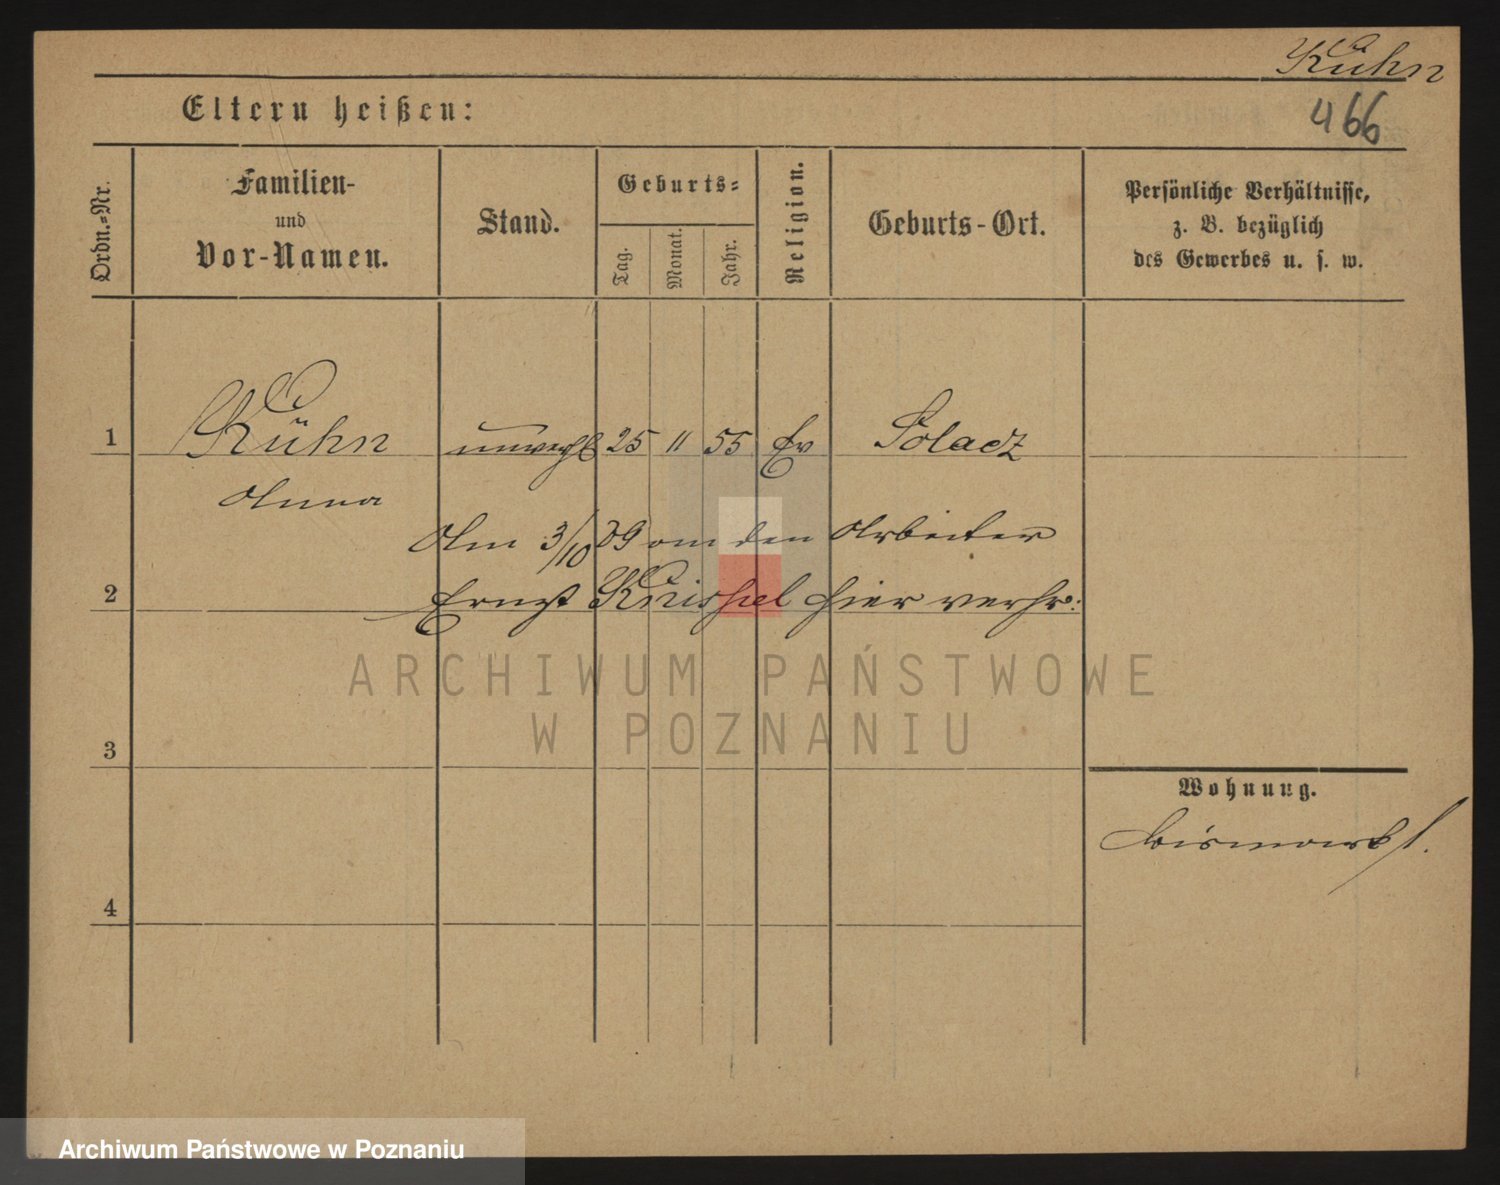 Kühn
Eltern heißen:
466
Ordn.=Nr.
Familien-
und
Vor-Namen.
Stand.
Geburts=
Tag.
Monat.
Jahr.
Religion.
Geburts-Ort.
Persönliche Verhältnisse,
z. B. bezüglich
des Gewerbes u. s. w.
1 Kühn unverhl 25 11 55 Ev Solacz
Anna
Am 3/10 09 an den Arbeiter
2 Ernst Knispel hier verhr:
ARCHIWUM PAŃSTWOWE
W POZNANIU
3
Wohnung.
Bismarck
4
Archiwum Państwowe w Poznaniu